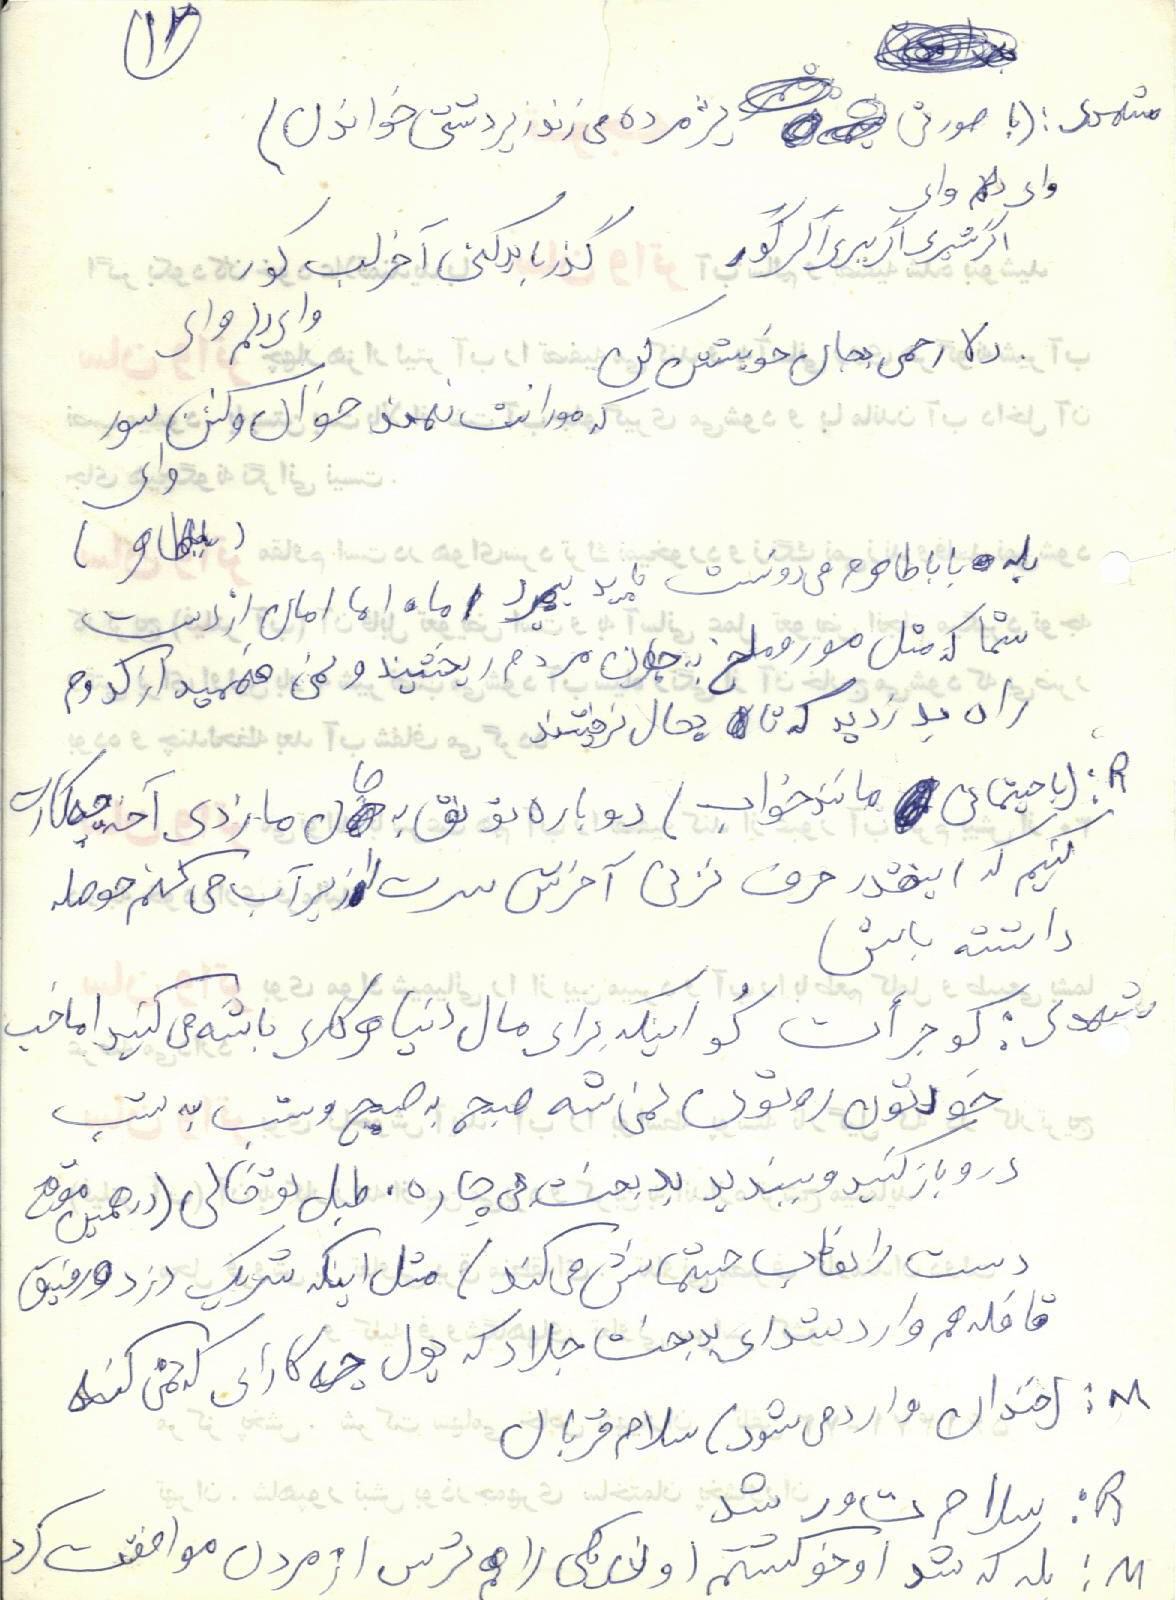 ۱۲
مشهدی: (با صورتی پژمرده می زند زیر دشتی خواندن)
وای دلم وای
اگر شیری اگر ببری اگر گور گذر باید کنی آخر لب گور
وای دلم وای
دلا رحمی بجان خویشتن کن
که مورانت نهند خوان و کنن سور
وای
بله باباطاهرم می دونست باید بمیرد اما امان از دست
شما که مثل مور و ملخ به جون مردم ریختید و نمی فهمید از کدوم
راه بدزدید که تا بحال نرفتند
R: (با چشمانی مانند خواب) دوباره تو نق به جان ما زدی آخه چه کارت
کنیم که اینقدر حرف نزنی آخرش سرت زیر آب می کنم حوصله
داشته باش
مشهدی: کو جرأت کُو اینکه برای مال دنیا هر کاری باشه می کنید اما خب
خودتون روتون نمی شه صبح به صبح و شب به شب
درو باز کنید و ببندید بدبخت بی چاره. طبل تو خالی (در همین موقع
دست را نقاب چشماش می کند) مثل اینکه شریک دزد و رفیق
قافله هم وارد شد ای بدبخت جلاد که پول چه کارای که نمی کنه
M: (خندان وارد می شود) سلام قربان
R: سلام شد
M: بله که شد اوخو کشتم اون یکی را هم ترس از مردن موافقت کرد